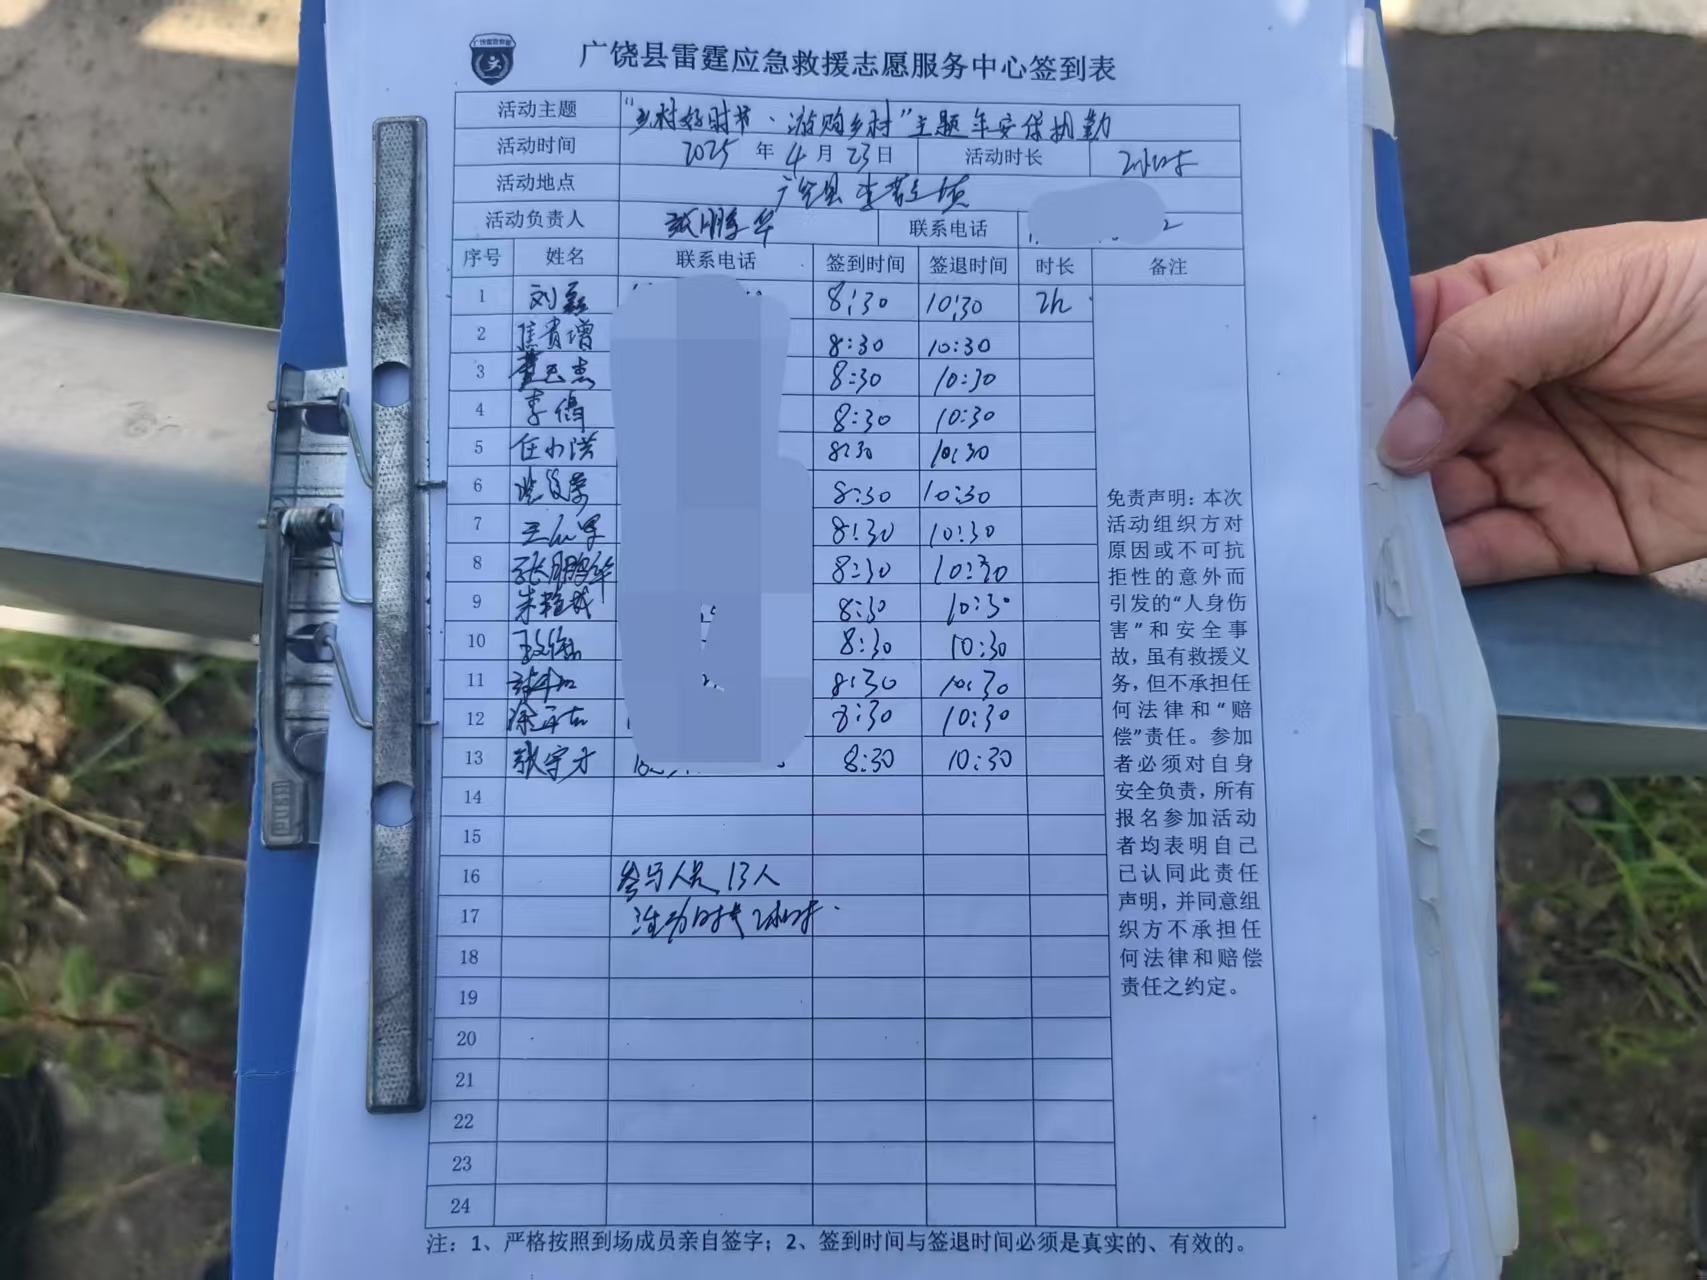 广饶县雷霆应急救援志愿服务中心签到表
活动主题 "乡村好时节·游购乡村"主题年安保执勤
活动时间 2025 年 4 月 23 日 活动时长 2小时
活动地点 广饶县李鹊镇
活动负责人 张鹏华 联系电话
序号 姓名 联系电话 签到时间 签退时间 时长 备注
1 刘磊 8:30 10:30 2h
2 焦贵增 8:30 10:30
3 8:30 10:30
4 李倩 8:30 10:30
5 任小洪 8:30 10:30
6 8:30 10:30
7 8:30 10:30
8 张鹏华 8:30 10:30
9 8:30 10:30
10 8:30 10:30
11 8:30 10:30
12 8:30 10:30
13 张守才 8:30 10:30
14
15
16 参与人员 13人
17 活动时长 2小时.
18
19
20
21
22
23
24
免责声明：本次
活动组织方对
原因或不可抗
拒性的意外而
引发的"人身伤
害"和安全事
故，虽有救援义
务，但不承担任
何法律和"赔
偿"责任。参加
者必须对自身
安全负责，所有
报名参加活动
者均表明自己
已认同此责任
声明，并同意组
织方不承担任
何法律和赔偿
责任之约定。
注：1、严格按照到场成员亲自签字；2、签到时间与签退时间必须是真实的、有效的。